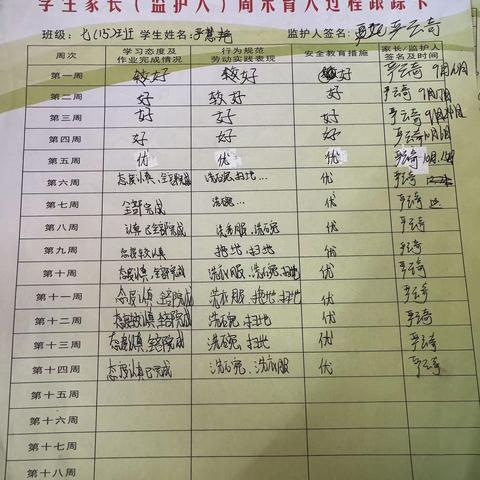 学生家长（监护人）周末育人过程跟踪卡
班级: 学生姓名: 监护人签名: 严云奇
周次 学习态度及作业完成情况 行为规范劳动实践表现 安全教育措施 家长/监护人签名及时间
第一周 较好 较好 较好 严云奇
第二周 好 较好 好 严云奇
第三周 好 好 好 严云奇
第四周 好 好 好 严云奇
第五周 优 优 优 严云奇
第六周 态度认真,全部完成 洗碗,扫地... 优 严云奇
第七周 全部完成 洗碗... 优 严云奇
第八周 认真已全部完成 洗衣服,洗碗 优 严云奇
第九周 态度较认真 拖地,扫地 优 严云奇
第十周 态度认真,全部完成 洗衣服,洗碗,扫地 优 严云奇
第十一周 态度认真,全部完成 洗衣服,拖地,扫地 优 严云奇
第十二周 态度较认真,全部完成 洗碗,扫地 优 严云奇
第十三周 态度认真,全部完成 洗碗,扫地 优 严云奇
第十四周 态度认真已完成 洗碗,洗衣服 优 严云奇
第十五周
第十六周
第十七周
第十八周